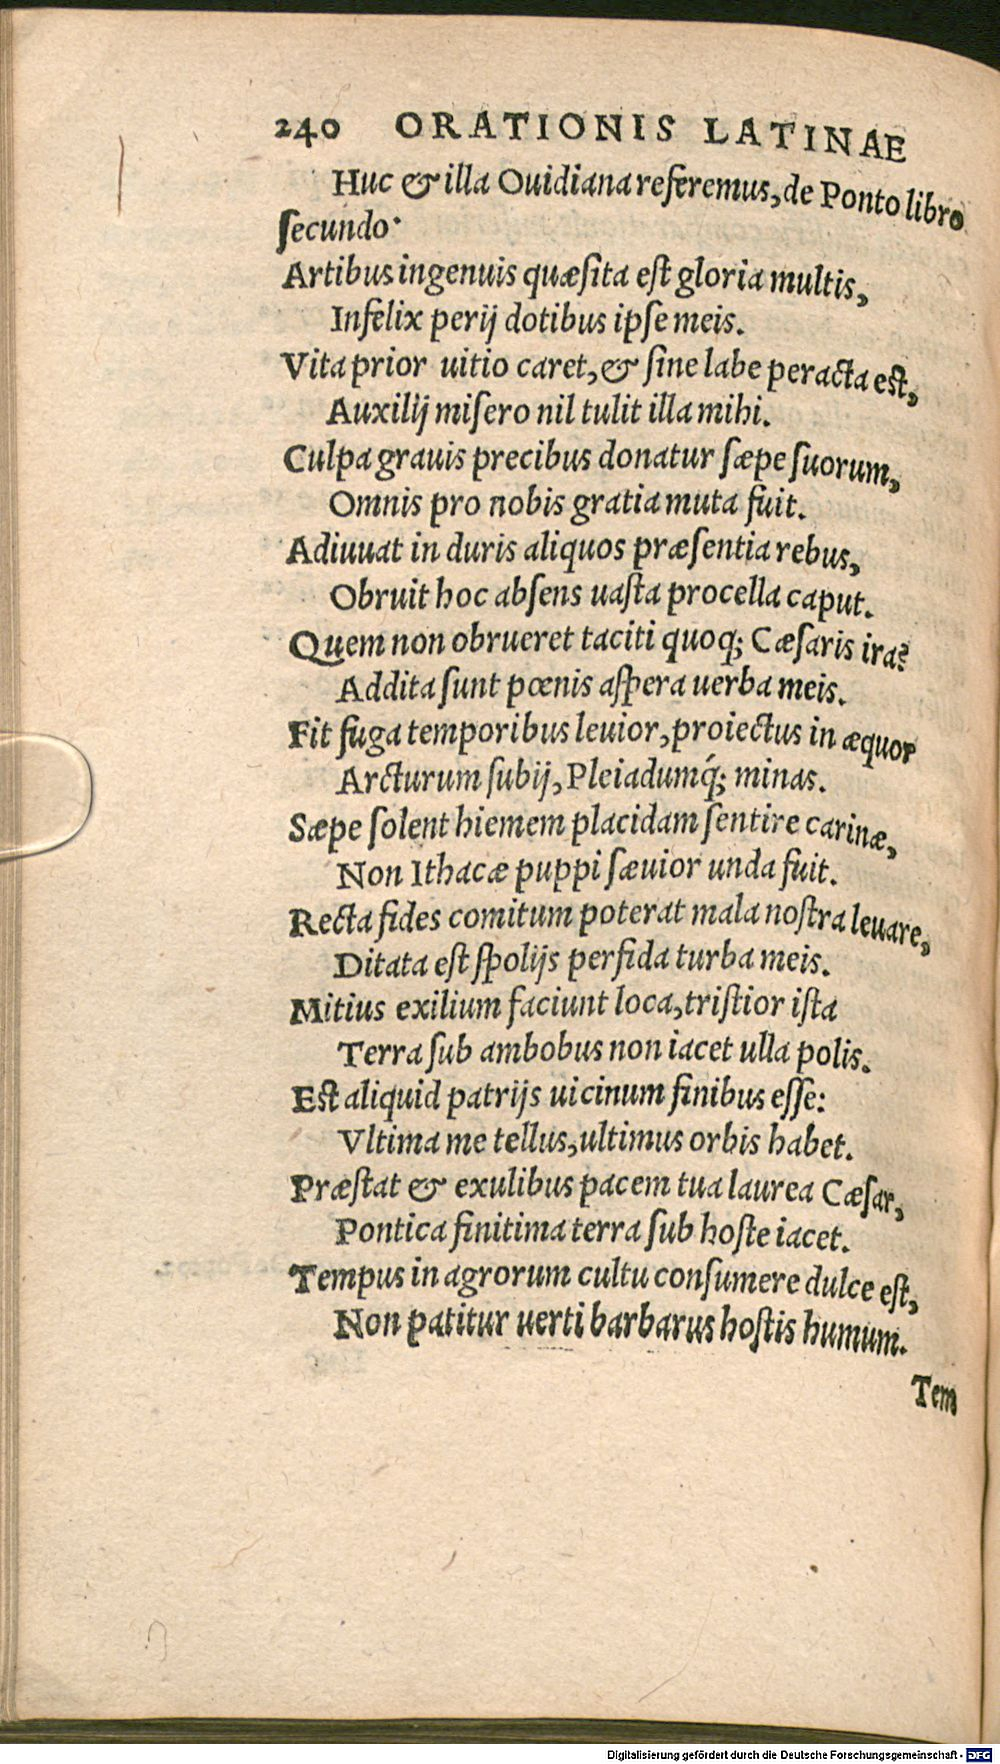 240 ORATIONIS LATINAE
Huc & illa Ouidiana referemus, de Ponto libro
ſecundo·
Artibus ingenuis quæſita eſt gloria multis,
Infelix perij dotibus ipſe meis.
Vita prior uitio caret, & ſine labe peracta eſt,
Auxilij miſero nil tulit illa mihi.
Culpa grauis precibus donatur ſæpe ſuorum,
Omnis pro nobis gratia muta fuit.
Adiuuat in duris aliquos præſentia rebus,
Obruit hoc abſens uaſta procella caput.
Quem non obrueret taciti quoq; Cæſaris ira?
Addita ſunt pœnis aſpera uerba meis.
Fit fuga temporibus leuior, proiectus in æquor
Arcturum ſubij, Pleiadumq́; minas.
Sæpe ſolent hiemem placidam ſentire carinæ,
Non Ithacæ puppi ſæuior unda fuit.
Recta fides comitum poterat mala noſtra leuare,
Ditata eſt ſpolijs perfida turba meis.
Mitius exilium faciunt loca, triſtior iſta
Terra ſub ambobus non iacet ulla polis.
Eſt aliquid patrijs uicinum finibus eſſe:
Vltima me tellus, ultimus orbis habet.
Præſtat & exulibus pacem tua laurea Cæſar,
Pontica finitima terra ſub hoſte iacet.
Tempus in agrorum cultu conſumere dulce eſt,
Non patitur uerti barbarus hoſtis humum.
Tem
Digitalisierung gefördert durch die Deutsche Forschungsgemeinschaft - DFG